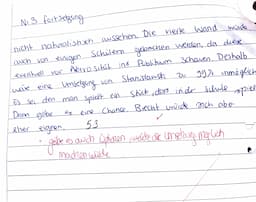 Nr.3 Fortsetzung
nicht naturalistisch aussehen. Die vierte Wand würde
auch von einigen Schülern gebrochen werden, da diese
eventuell vor Nervosität ins Publikum schauen. Deshalb
wäre eine Umsetzung von Stanislawski zu 99% unmöglich
Es sei den man spielt ein Stück, dass in der Schule spielt
Dann gäbe es eine Chance. Brecht würde sich aber
eher eignen.
53
- gäbe es auch Optionen, welche die Umsetzung möglich
machen würde